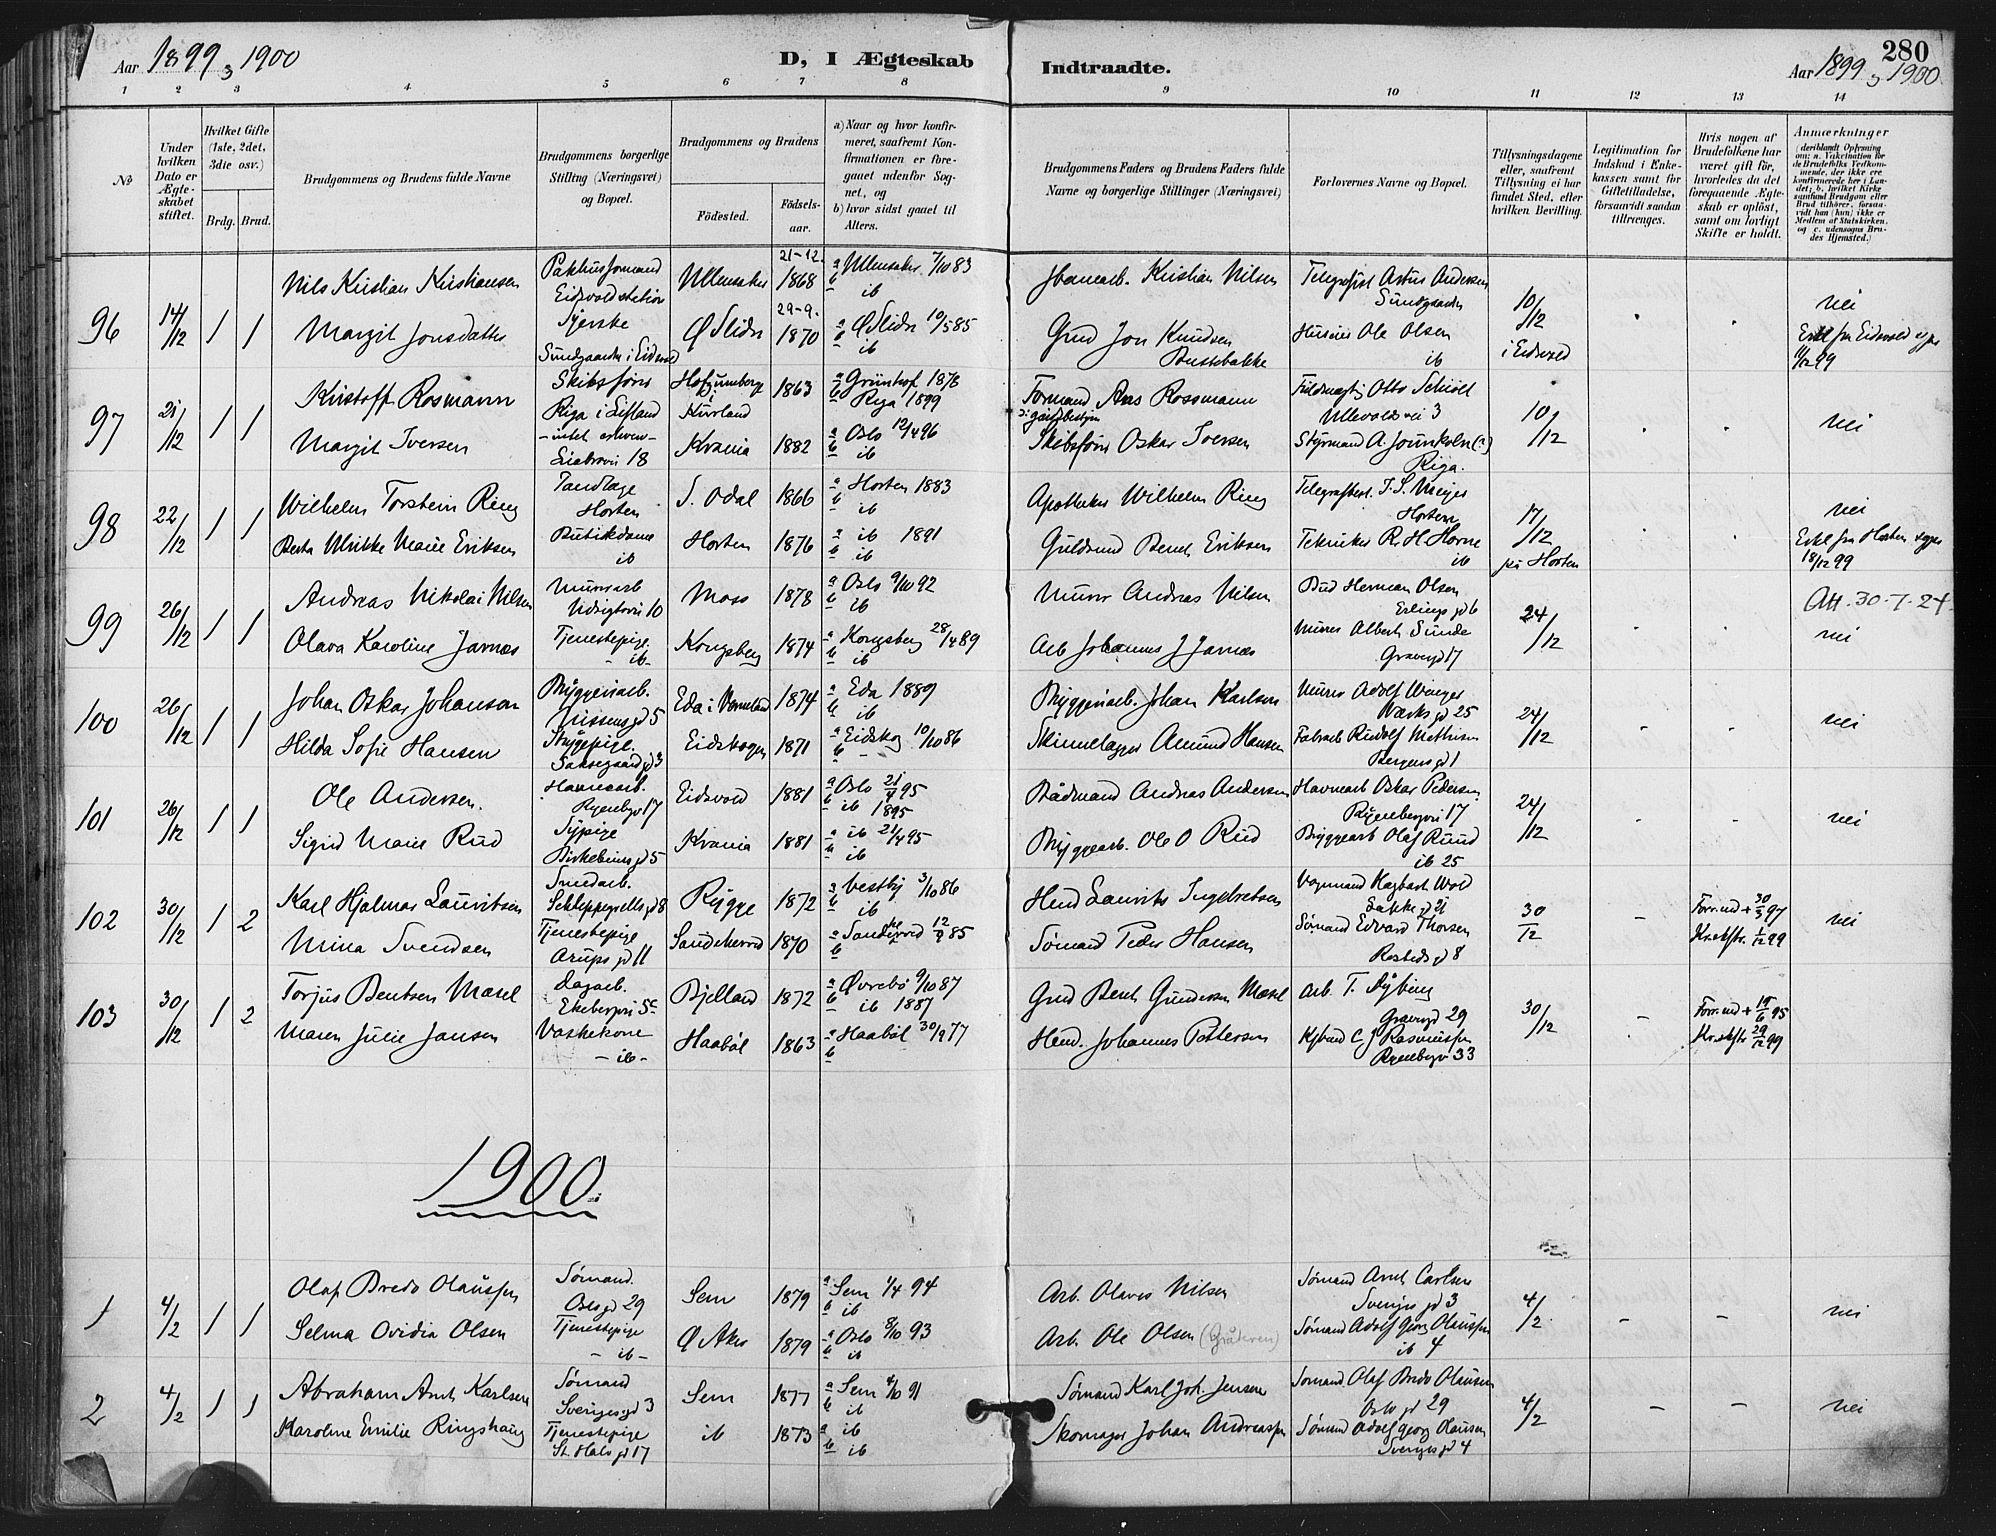 280
Aar 1899 og 1900
D, I Ægteskab Indtraadte.
Aar 1899 og 1900.
1 2 3 4 5 6 7 8 9 10 11 12 13 14
No
Under hvilken Dato er Ægteskabet stiftet.
Hvilket Gifte (1ste, 2det, 3die osv.)
Brdg. Brud.
Brudgommens og Brudens fulde Navne
Brudgommens borgerlige Stilling (Næringsvei) og Bopæl.
Brudgommens og Brudens
Fødested. Fødselsaar.
a) Naar og hvor konfirmeret, saafremt Konfirmationen er foregaaet udenfor Sognet, og
b) hvor sidst gaaet til Alters.
Brudgommens Faders og Brudens Faders fulde Navne og borgerlige Stillinger (Næringsvei)
Forlovernes Navne og Bopæl.
Tillysningsdagene eller, saafremt Tillysning ei har fundet Sted, efter hvilken Bevilling.
Legitimation for Indskud i Enkekassen samt for Giftetilladelse, forsaavidt saadan tiltrænges.
Hvis nogen af Brudefolkene har været gift før, hvorledes da det foregaaende Ægteskab er opløst, samt om lovligt Skifte er holdt.
Anmærkninger
(deriblandt Oplysning om: a. Vakcination for de Brudefolks Vedkommende, der ikke ere konfirmerede her i Landet; b. hvilket Kirkesamfund Brudgom eller Brud tilhører, forsaavidt han (hun) ikke er Medlem af Statskirken, og c. udensogns Brudes Hjemsted.)
96 14/12 1 1
Nils Kristian Kristiansen Pakhusformand Eidsvold station Ullensaker 21-12. 1868 a Ullensaker 7/10 83 b ib
Kristian Nilsen Telegrafist Andersen Sundgaarden 10/12 i Eidsvold nei
Margit Jonsdatter Syerske Sundgaarden i Eidsvold Ø Slidre 29-9. 1870 a Ø Slidre 10/5 85 b ib
Gmd Jon Knudsen Ole Olsen ib fra Eidsvold 11/12 99
97 21/12 1 1
Kristoff Rosmann Skibsfører Riga i Lifland 1863 a Grünhof 1878 b Riga 1899
Formand Ans Rossmann Otto Schiøll Ullevoldsvei 3 10/12 nei
Margit Iversen Kr.ania 1882 a Oslo 12/4 96 b ib
Skibsfører Oskar Iversen Styrmand A. Riga.
98 22/12 1 1
Wilhelm Torstein Ring Tandlæge Horten S. Odal 1866 a Horten 1883 b ib
Apotheker Wilhelm Ring Telegrafbest. Horten 17/12 på Horten nei
Berta Ulrikke Marie Eriksen Butikdame ib Horten 1876 a ib 1891 b ib
Guldsmd Bernt Eriksen Tekniker R. H. Horne ib Erkl fra Horten 18/12 99
99 26/12 1 1
Andreas Nikolai Nilsen Murerarb Udsigtsvei 10 Moss 1878 a Oslo 9/10 92 b ib
Murer Andreas Nilsen Bud Herman Olsen Erlings gd 6 24/12 Att. 30-7-24
Olava Karoline Jarnæs Tjenestepige - ib - Kongsberg 1874 a Kongsberg 28/4 89 b ib
Arb Johannes J Jarnæs Murer Albert Sunde Gravergd 17 nei
100 26/12 1 1
Johan Oskar Johanson Bryggeriarb. Nissens gd 5 Eda i Vermeland 1874 a Eda 1889 b ib
Bryggeriarb. Johan Karlson Murer Adolf Verks gd 25 24/12 nei
Hilda Sofie Hansen Saksegaard gd 3 Eidskogen 1871 a Eidskog 10/10 86 b -
Amund Hansen Fabrarb Rudolf Mathisen Bergens gd 1
101 26/12 1 1
Ole Andersen. Havnearb. Ryenbergv 17 Eidsvold 1881 a Oslo 21/4 95 b ib 1895
Baadmand Andreas Andersen Havnearb Oskar Pedersen Ryenbergvei 17 24/12 nei
Sigrid Marie Rud Sypige Birkebeinergd 5 Kr.ania 1881 a ib 21/4 95 b ib
Bryggearb. Ole O Rud Bryggearb Olaf Ruud ib 25
102 30/12 1 2
Karl Hjalmar Lauritsen Smedarb. Schleppegrells gd 8 Rygge 1872 a Vestby 3/10 86 b ib
Hmd Laurits Ingebretsen Vognmand Hagbart Wold Bakke gd 21 30/12 - Forr. md + 30/3 97 nei
Mina Svendsen Tjenestepige Arups gd 11 Sandeherred 1870 a Sandeherred 12/9 85 b
Sømand Peder Hansen Sømand Edvard Thorsen Rosteds gd 8 Kr. skfte. 1/12 99
103 30/12 1 2
Torjus Bentsen Mosel Dagarb. Ekebergvei 5c Bjelland 1872 a Øvrebø 9/10 87 b ib 1887
Gmd Bent Gundersen Mosel Arb. T. Nyberg Gravergd 29 30/12 - Forr. md + 19/6 95 nei
Maren Julie Jansen Vaskekone - ib - Haabøl 1863 a Haabøl 30/9 77 b
Hmd. Johannes Pettersen C J Rasmussen Ryenbergv 33 Kr. skfte 29/12 99
1900.
1 4/2 1 1
Olaf Bredo Olaussen Sømand. Oslo gd 29 Sem 1879 a Sem 1/4 94 b ib
Arb. Olaves Nilsen Sømand Arnt Carlsen Sveriges gd 3 4/2 - - nei
Selma Ovidia Olsen Tjenestepige - ib - Ø Aker 1879 a Oslo 8/10 93 b ib
Arb. Ole Olsen (Gråteren) Sømand Adolf Georg Olaussen ib 4
2 4/2 1 1
Abraham Arnt Karlsen Sømand Sveriges gd 3 Sem 1877 a Sem 4/10 91 b ib
Sømand Karl Joh. Jensen Sømand Olaf Bredo Olausen Oslo gd 29 4/2 - - nei
Karoline Emilie Ringshaug Tjenestepige St. Halv gd 17 ib 1873 a ib b ib
Skomager Johan Andreassen Sømand Adolf Georg Olausen Sveriges gd 4